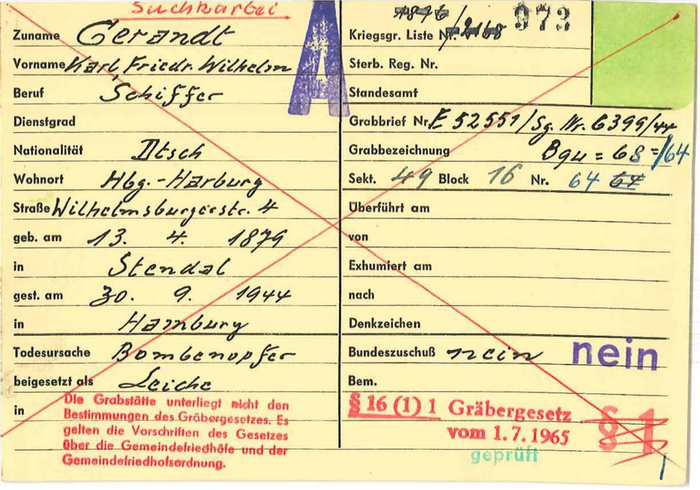 Suchkartei
A
Zuname Gerandt
Vorname Karl, Friedr. Wilhelm
Beruf Schiffer
Dienstgrad
Nationalität Dtsch
Wohnort Hbg.-Harburg
Straße Wilhelmsburgerstr. 4
geb. am 13. 4. 1879
in Stendal
gest. am 30. 9. 1944
in Hamburg
Todesursache Bombenopfer
beigesetzt als Leiche
in
Die Grabstätte unterliegt nicht den
Bestimmungen des Gräbergesetzes. Es
gelten die Vorschriften des Gesetzes
über die Gemeindefriedhöfe und der
Gemeindefriedhofsordnung.
973
Kriegsgr. Liste Nr. /2168
Sterb. Reg. Nr.
Standesamt
Grabbrief Nr. E 52551/Sg. Nr. 6399/44
Grabbezeichnung Bqu = 68 = /64
Sekt. 49 Block 16 Nr. 64 64
Überführt am
von
Exhumiert am
nach
Denkzeichen
Bundeszuschuß nein nein
Bem.
§ 16 (1) 1 Gräbergesetz
vom 1.7.1965
geprüft
§ 1